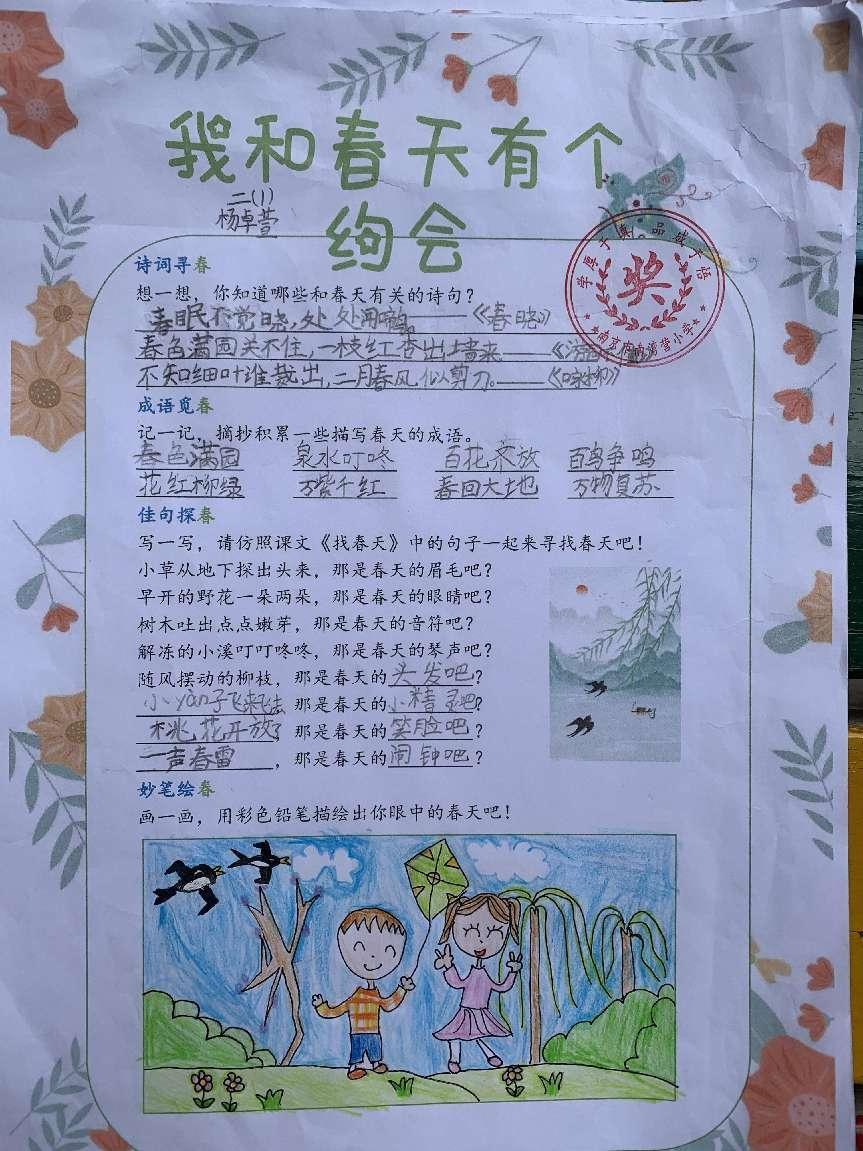 我和春天有个
约会
二(1)
杨卓萱
诗词寻春
想一想，你知道哪些和春天有关的诗句？
春眠不觉晓，处处闻啼鸟。——《春晓》
春色满园关不住，一枝红杏出墙来——《游园不值》
不知细叶谁裁出，二月春风似剪刀。——《咏柳》
成语觅春
记一记，摘抄积累一些描写春天的成语。
春色满园 泉水叮咚 百花齐放 百鸟争鸣
花红柳绿 万紫千红 春回大地 万物复苏
佳句探春
写一写，请仿照课文《找春天》中的句子一起来寻找春天吧！
小草从地下探出头来，那是春天的眉毛吧？
早开的野花一朵两朵，那是春天的眼睛吧？
树木吐出点点嫩芽，那是春天的音符吧？
解冻的小溪叮叮咚咚，那是春天的琴声吧？
随风摆动的柳枝，那是春天的头发吧？
小yàn子飞来飞去，那是春天的小精灵吧？
桃花开放了，那是春天的笑脸吧？
一声春雷，那是春天的闹钟吧？
妙笔绘春
画一画，用彩色铅笔描绘出你眼中的春天吧！
奖